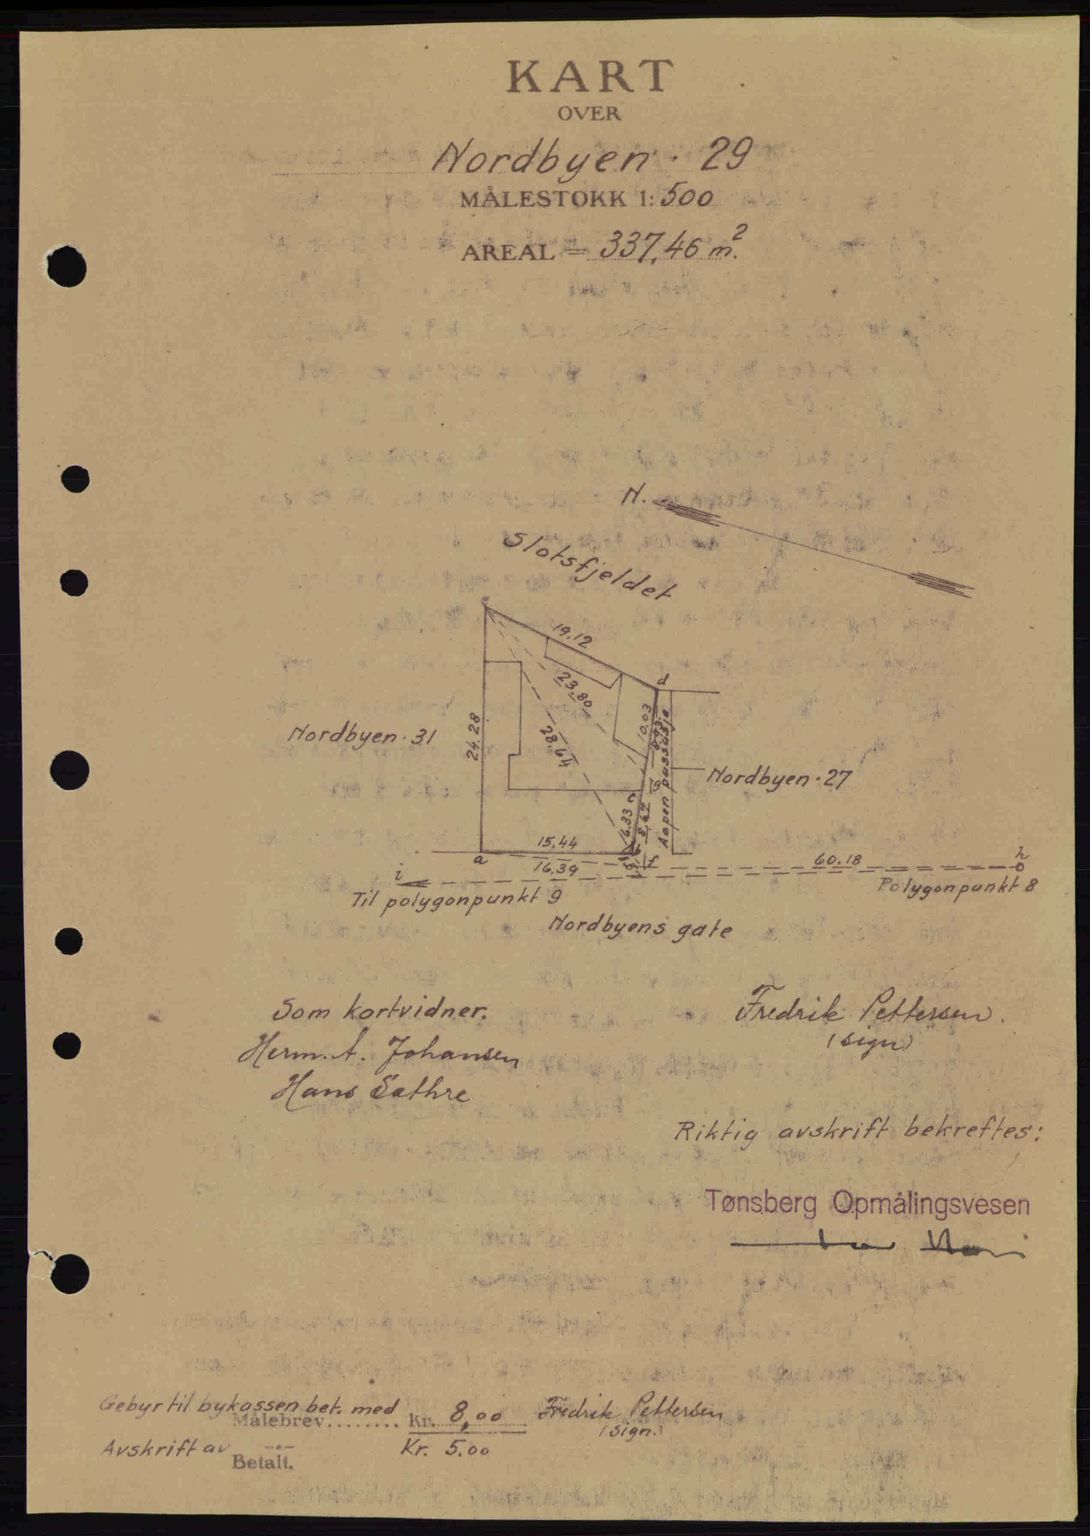 KART
OVER
Nordbyen · 29
MÅLESTOKK 1: 500
AREAL = 337,46 m².
N.
Slotsfjeldet
c
19.12
d
23.80
28.64
24.28
10.03
Nordbyen · 31
Aapen passasje
Nordbyen · 27
g
e
6.33
8.67
15.44
a
b
f
16.39
60.18
h
i
Til polygonpunkt 9
Polygonpunkt 8
Nordbyens gate
Som kartvidner.
Herm. A. Johansen
Hans Sæthre
Fredrik Pettersen.
(sign)
Riktig avskrift bekreftes:
Tønsberg Opmålingsvesen
Gebyr til bykassen bet. med
Målebrev........ Kr. 8,00
Fredrik Pettersen
(sign.)
Avskrift av —"— Kr. 5.00
Betalt.